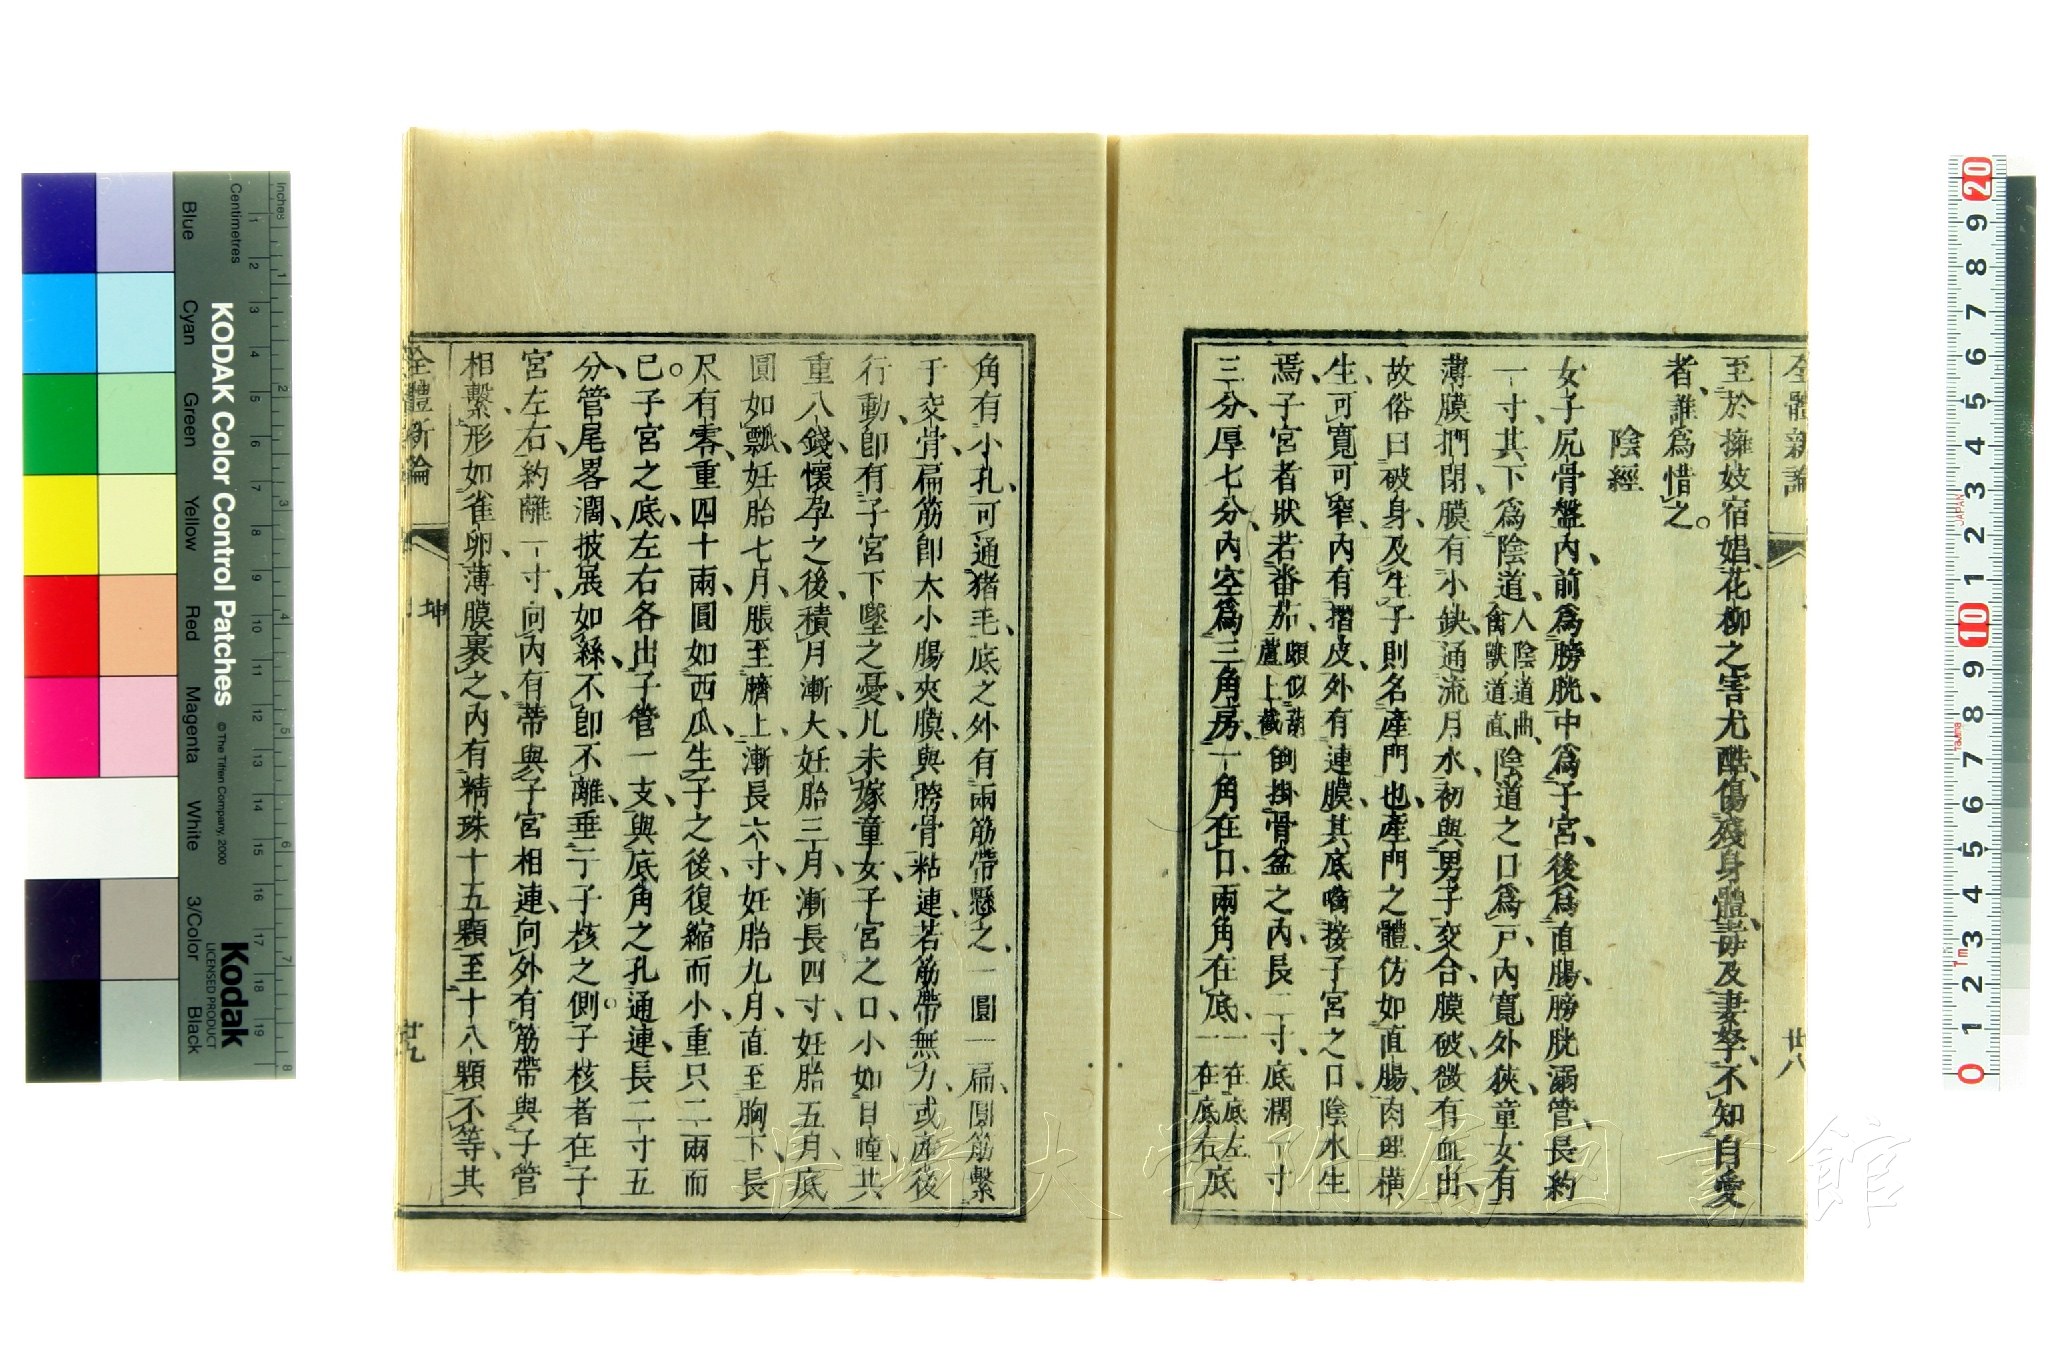 全體新論
卅八
至於擁妓宿娼、花柳之害尤酷、傷殘身體、毒及妻孥、不知自愛
者、誰為惜之。
陰經
女子尻骨盤內、前爲膀胱、中爲子宮、後爲直腸、膀胱溺管、長約
一寸、其下爲陰道、人陰道曲、禽獸道直、陰道之口爲戸、內寬外狹、童女有
薄膜捫閉、膜有小缺、通流月水、初與男子交合、膜破微有血出、
故俗曰破身、及生子則名產門也、產門之體、仿如直腸、肉理橫
生、可寬可窄、內有摺皮、外有連膜、其底嘴接子宮之口、陰水生
焉、子宮者狀若番茄、頗似葫蘆上截、倒掛骨盆之內、長二寸、底濶一寸
三分、厚七分、內空爲三角房、一角在口、兩角在底、一在底左、一在底右、底
角有小孔、可通猪毛、底之外有兩筋帶懸之、一圓一扁、圓筋繫
于交骨、扁筋卽大小腸夾膜、與胯骨粘連、若筋帶無力、或產後
行動、卽有子宮下墜之憂、凡未嫁童女、子宮之口、小如目瞳、其
重八錢、懷孕之後、積月漸大、妊胎三月、漸長四寸、妊胎五月、底
圓如瓢、妊胎七月、脹至臍上、漸長六寸、妊胎九月、直至胸下、長
尺有零、重四十兩、圓如西瓜、生子之後、復縮而小、重只二兩而
已。子宮之底、左右各出子管一支、與底角之孔通連、長二寸五
分、管尾畧濶、披展如絲、不卽不離、垂于子核之側。子核者在子
宮左右、約離一寸、向內有蒂、與子宮相連、向外有筋帶與子管
相繫、形如雀卵、薄膜裹之、內有精珠十五顆至十八顆不等、其
全體新論
坤
廿九
長崎大学附属図書館
KODAK Color Control Patches
© The Tiffen Company, 2000
Kodak
LICENSED PRODUCT
Inches
Centimetres
Blue
Cyan
Green
Yellow
Red
Magenta
White
3/Color
Black
1 2 3 4 5 6 7 8 9 10 11 12 13 14 15 16 17 18 19
1 2 3 4 5 6 7 8
20 9 8 7 6 5 4 3 2 1 10 9 8 7 6 5 4 3 2 1 0
JAPAN